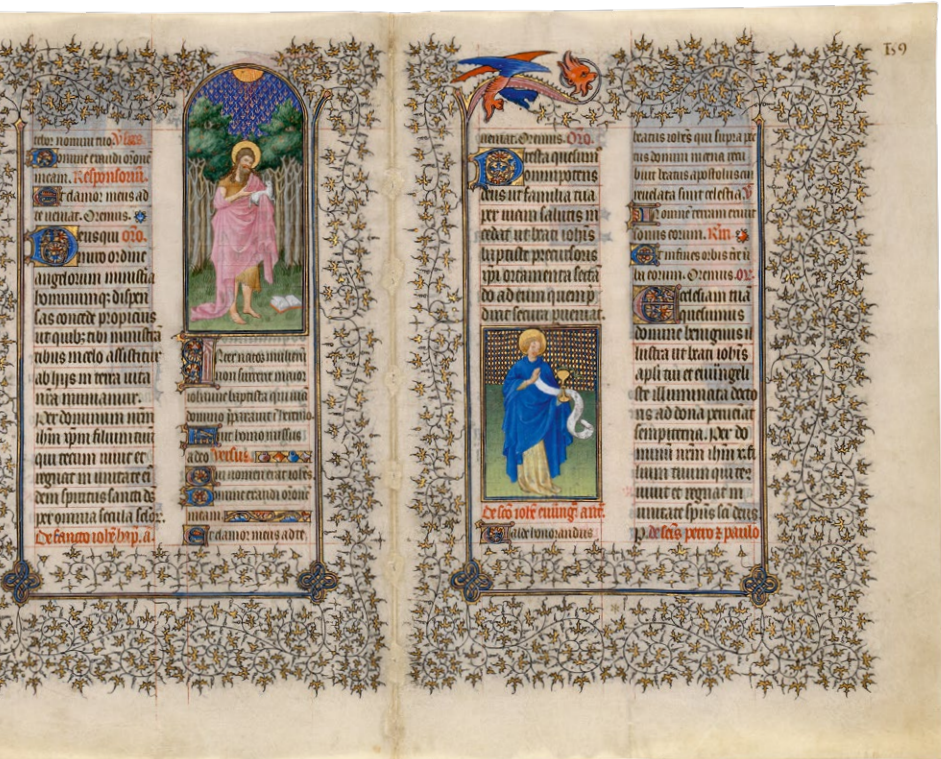 159
bitor nomini tuo. Versus.
Domine exaudi orationē
meam. Responsoriū.
Et clamor meus ad
te veniat. Oremus.
Deus qui oro.
miro ordine
angelorum ministeria
hominumque dispen
sas concede propicius
ut quibus tibi ministrā
tibus in celo assistitur
ab hijs in terra vita
nrā muniatur.
Per dominum nrm̄
ihm̄ xpm̄ filium tuū
qui tecum vivit et
regnat in unitate ei
dem spiritus sancti ds̄
per omnia secula seclor.
De sancto iohē bap. a.
Inter natos mulierū
non surrexit maior
iohanne baptista qui viā
domino preparavit in heremo
Fuit homo missus
a deo Versus.
cui nomen erat iohēs.
Domine exaudi orationē
meam
Et clamor meus ad te
veniat. Oremus. Oro.
Presta quesum
omnipotens
deus ut familia tua
per viam salutis in
cedat et beati iohīs
baptiste precursoris
ortamenta secta
do ad eum quem p
dixit secura perveniat.
De scō iohē euūng. ant.
Valde honorandus
beatus iohēs qui supra pe
ctus domini in cena recu
buit beatus apostolus cui
revelata sunt celestia V
In omnē terram exivit
sonus eorum. Rm.
Et in fines orbis terre v̄
ba eorum. Oremus. Or.
Ecclesiam tuā
quesumus
domine benignus il
lustra ut beati iohīs
apli tui et euūngeli
ste illuminata docto
ris ad dona perveniat
sempiterna. Per do
minū nrm ihm x. fi
lium tuum qui tec
vivit et regnat in
unitate spūs sci deus
p. de scīs petro z paulo